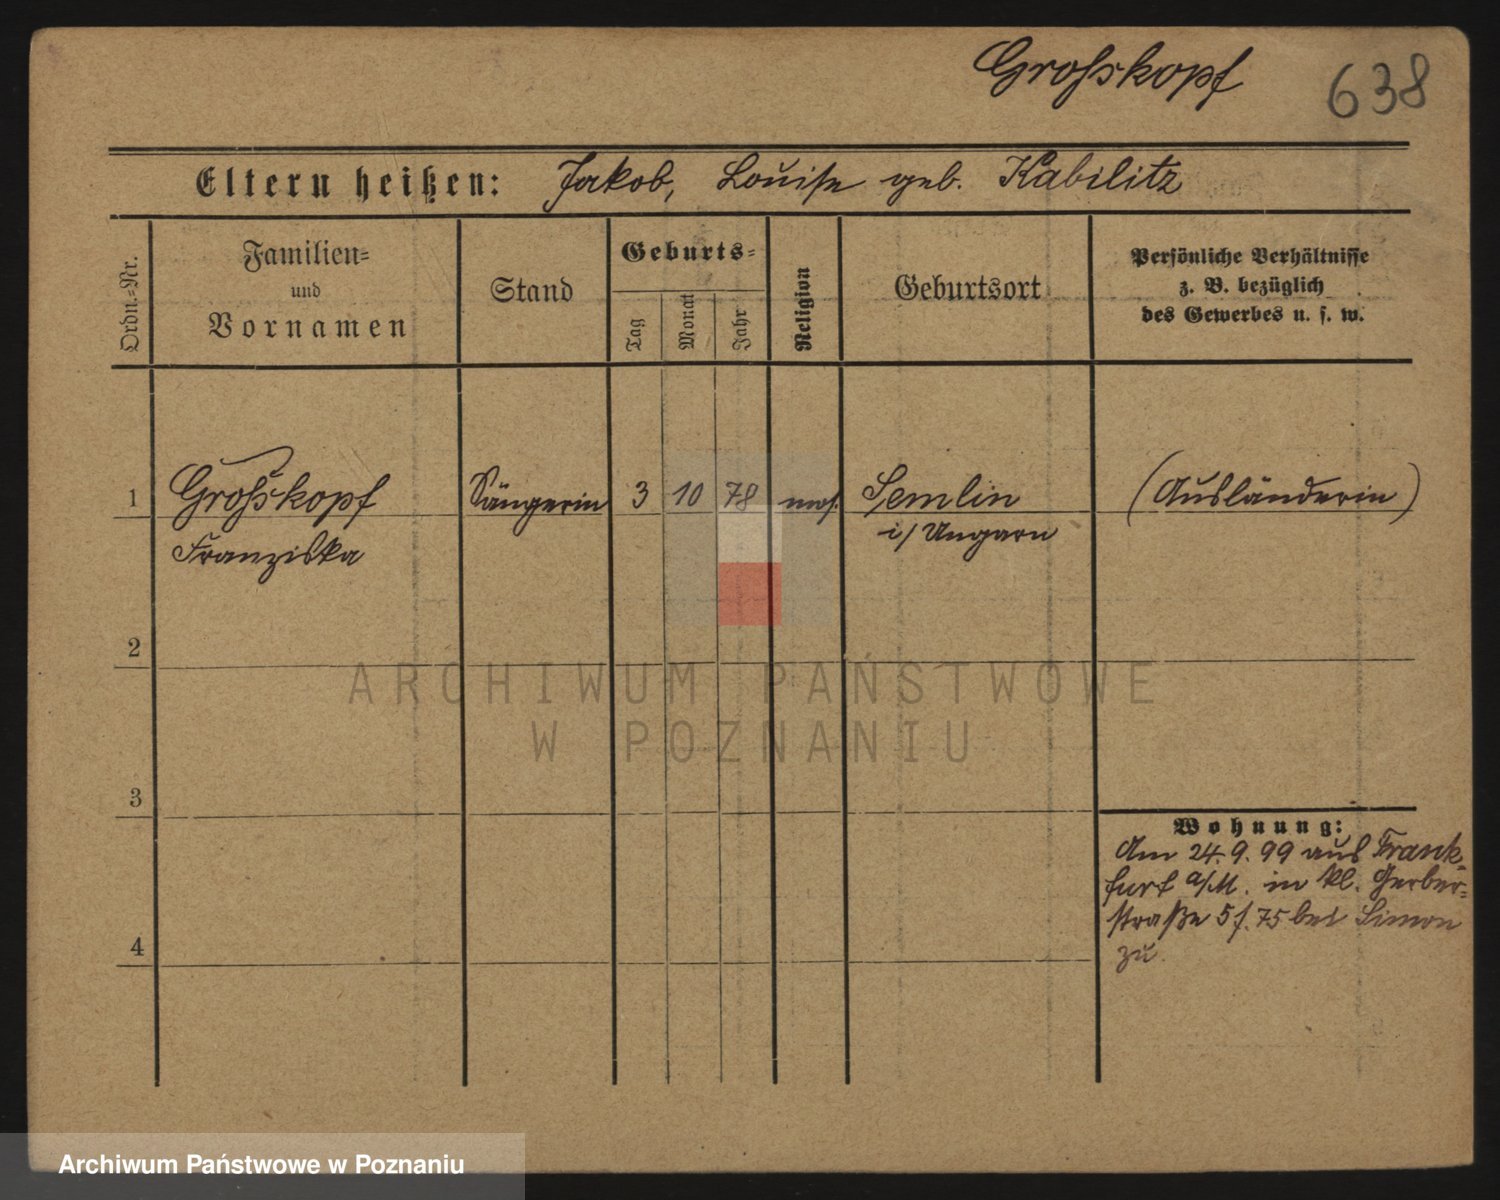 Großkopf 638
Eltern heißen: Jakob, Louise geb. Kabilitz
Ordn.-Nr.
Familien-
und
Vornamen
Stand
Geburts-
Tag
Monat
Jahr
Religion
Geburtsort
Persönliche Verhältnisse
z. B. bezüglich
des Gewerbes u. s. w.
1 Großkopf Sängerin 3 10 78 mos. Semlin (Ausländerin)
Franziska i/ Ungarn
2
3
4
Wohnung:
Am 24.9.99 aus Frank-
furt a/M. in kl. Gerber-
straße 5 f. 75 bei Simon
zu.
ARCHIWUM PAŃSTWOWE
W POZNANIU
Archiwum Państwowe w Poznaniu